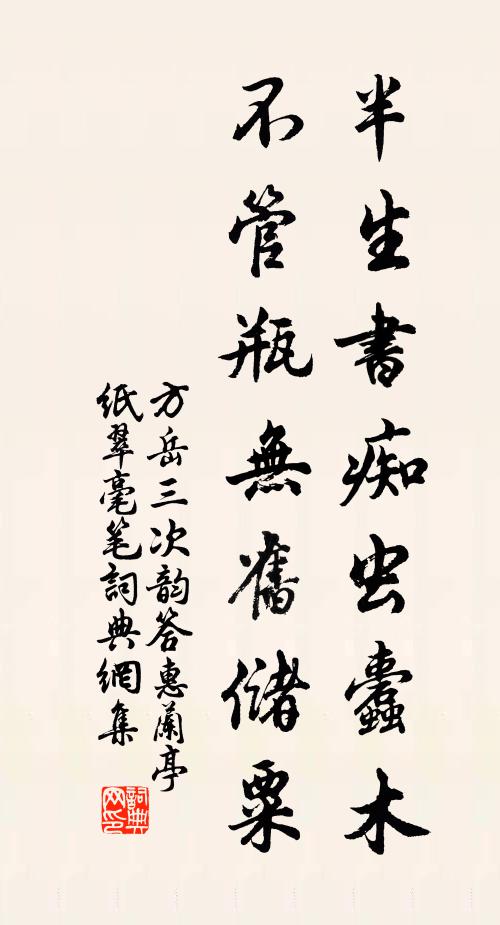 半生書痴虫蠹木
不管瓶無舊儲粟
方岳三次韵答惠蘭亭
紙翠毫笔詞典網集
詞典
网印